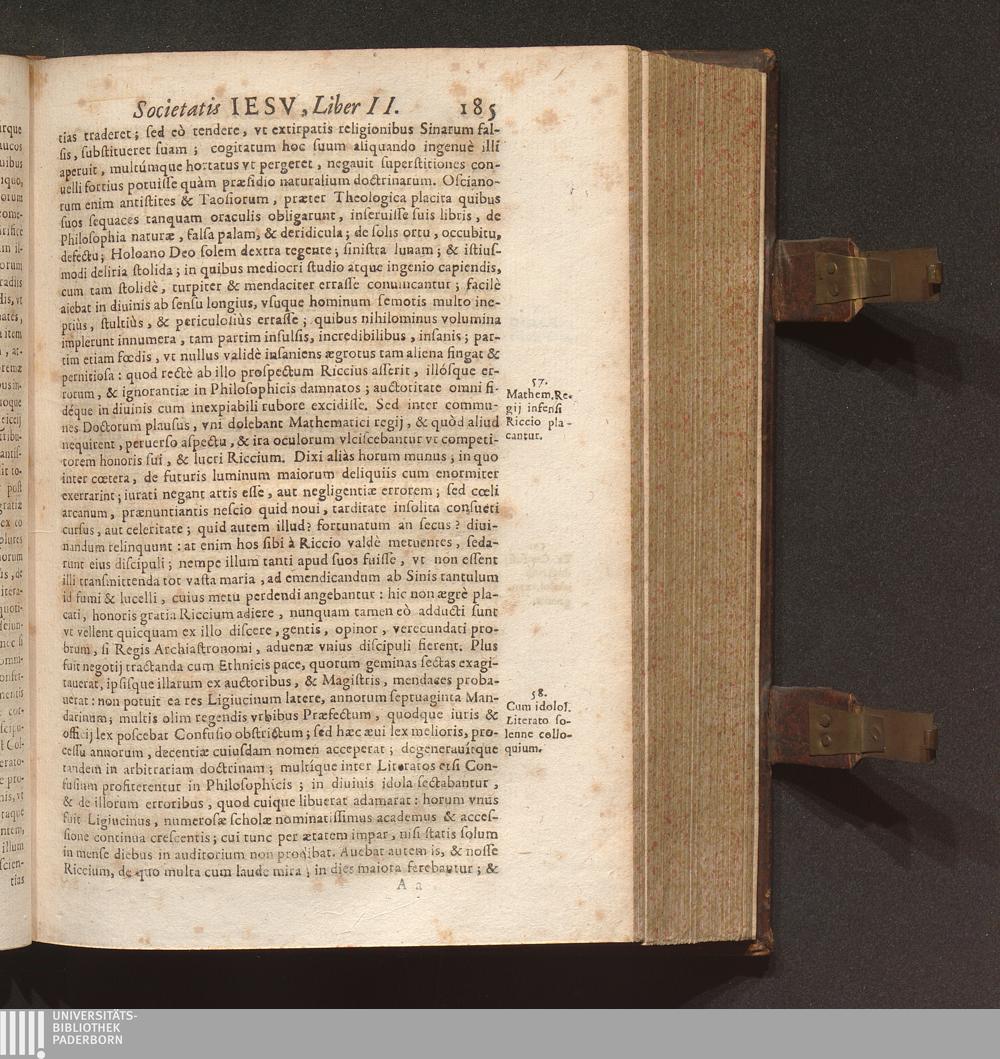 Societatis IESV, Liber II. 185
tias traderet; ſed eò tendere, vt extirpatis religionibus Sinarum fal-
ſis, ſubſtitueret ſuam; cogitatum hoc ſuum aliquando ingenuè illi
aperuit, multúmque hortatus vt pergeret, negauit ſuperſtitiones con-
uelli fortius potuiſſe quàm præſidio naturalium doctrinarum. Oſciano-
rum enim antiſtites & Taoſiorum, præter Theologica placita quibus
ſuos ſequaces tanquam oraculis obligarunt, inſeruiſſe ſuis libris, de
Philoſophia naturæ, falſa palam, & deridicula; de ſolis ortu, occubitu,
defectu; Holoano Deo ſolem dextra tegente; ſiniſtra lunam; & iſtiuſ-
modi deliria ſtolida; in quibus mediocri ſtudio atque ingenio capiendis,
cum tam ſtolidè, turpiter & mendaciter erraſſe conuincantur; facilè
aiebat in diuinis ab ſenſu longius, vſuque hominum ſemotis multo ine-
ptiùs, ſtultiùs, & periculoſiùs erraſſe; quibus nihilominus volumina
implerunt innumera, tam partim inſulſis, incredibilibus, inſanis; par-
tim etiam fœdis, vt nullus validè inſaniens ægrotus tam aliena fingat &
pernitioſa: quod rectè ab illo proſpectum Riccius aſſerit, illóſque er-
rorum, & ignorantiæ in Philoſophicis damnatos; auctoritate omni fi-
déque in diuinis cum inexpiabili rubore excidiſſe. Sed inter commu-
nes Doctorum plauſus, vni dolebant Mathematici regij, & quòd aliud
nequirent, peruerſo aſpectu, & ira oculorum vlciſcebantur vt competi-
torem honoris ſui, & lucri Riccium. Dixi aliàs horum munus; in quo
inter cœtera, de futuris luminum maiorum deliquiis cum enormiter
exerrarint; iurati negant artis eſſe, aut negligentiæ errorem; ſed cœli
arcanum, prænuntiantis neſcio quid noui, tarditate inſolita conſueti
curſus, aut celeritate; quid autem illud? fortunatum an ſecus? diui-
nandum relinquunt: at enim hos ſibi à Riccio valdè metuentes, ſeda-
runt eius diſcipuli; nempe illum tanti apud ſuos fuiſſe, vt non eſſent
illi tranſmittenda tot vaſta maria, ad emendicandum ab Sinis tantulum
id fumi & lucelli, cuius metu perdendi angebantur: hic non ægrè pla-
cati, honoris gratia Riccium adiere, nunquam tamen eò adducti ſunt
vt vellent quicquam ex illo diſcere, gentis, opinor, verecundati pro-
brum, ſi Regis Archiaſtronomi, aduenæ vnius diſcipuli fierent. Plus
fuit negotij tractanda cum Ethnicis pace, quorum geminas ſectas exagi-
tauerat, ipſiſque illarum ex auctoribus, & Magiſtris, mendaces proba-
uerat: non potuit ea res Ligiucinum latere, annorum ſeptuaginta Man-
darinum; multis olim regendis vrbibus Præfectum, quodque iuris &
officij lex poſcebat Confuſio obſtrictum; ſed hæc æui lex melioris, pro-
ceſſu annorum, decentiæ cuiuſdam nomen acceperat; degenerauitque
tandem in arbitrariam doctrinam; multíque inter Literatos etſi Con-
fuſium profiterentur in Philoſophicis; in diuinis idola ſectabantur,
& de illorum erroribus, quod cuique libuerat adamarat: horum vnus
fuit Ligiucinus, numeroſæ ſcholæ nominatiſſimus academus & acceſ-
ſione continua creſcentis; cui tunc per ætatem impar, niſi ſtatis ſolum
in menſe diebus in auditorium non prodibat. Auebat autem is, & noſſe
Riccium, de quo multa cum laude mira, in dies maiora ferebantur; &
A a
57.
Mathem. Re-
gij infenſi
Riccio pla-
cantur.
58.
Cum idolol.
Literato ſo-
lenne collo-
quium.
UNIVERSITÄTS-
BIBLIOTHEK
PADERBORN